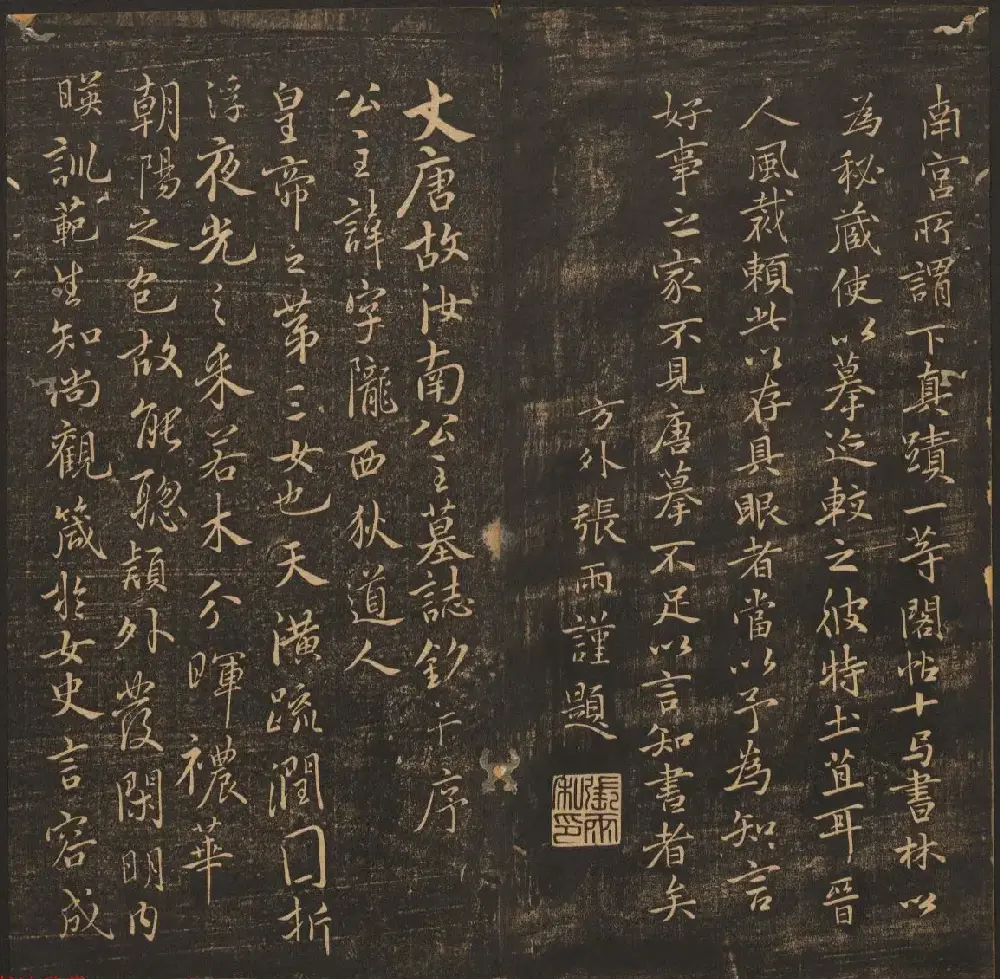 南宮所謂下真蹟一等閣帖十弓書林以
為秘藏使以摹迄較之彼特土苴耳晉
人風裁賴此以存具眼者當以予為知言
好事之家不見唐摹不足以言知書者矣
方外張雨謹題
張雨私印
大唐故汝南公主墓誌銘并序
公主諱字隴西狄道人
皇帝之第三女也天潢疏潤圓折
浮夜光之采若木分暉穠華
朝陽之色故能聰穎外發閑明內
暎訓範生知尚觀箴於女史言容成